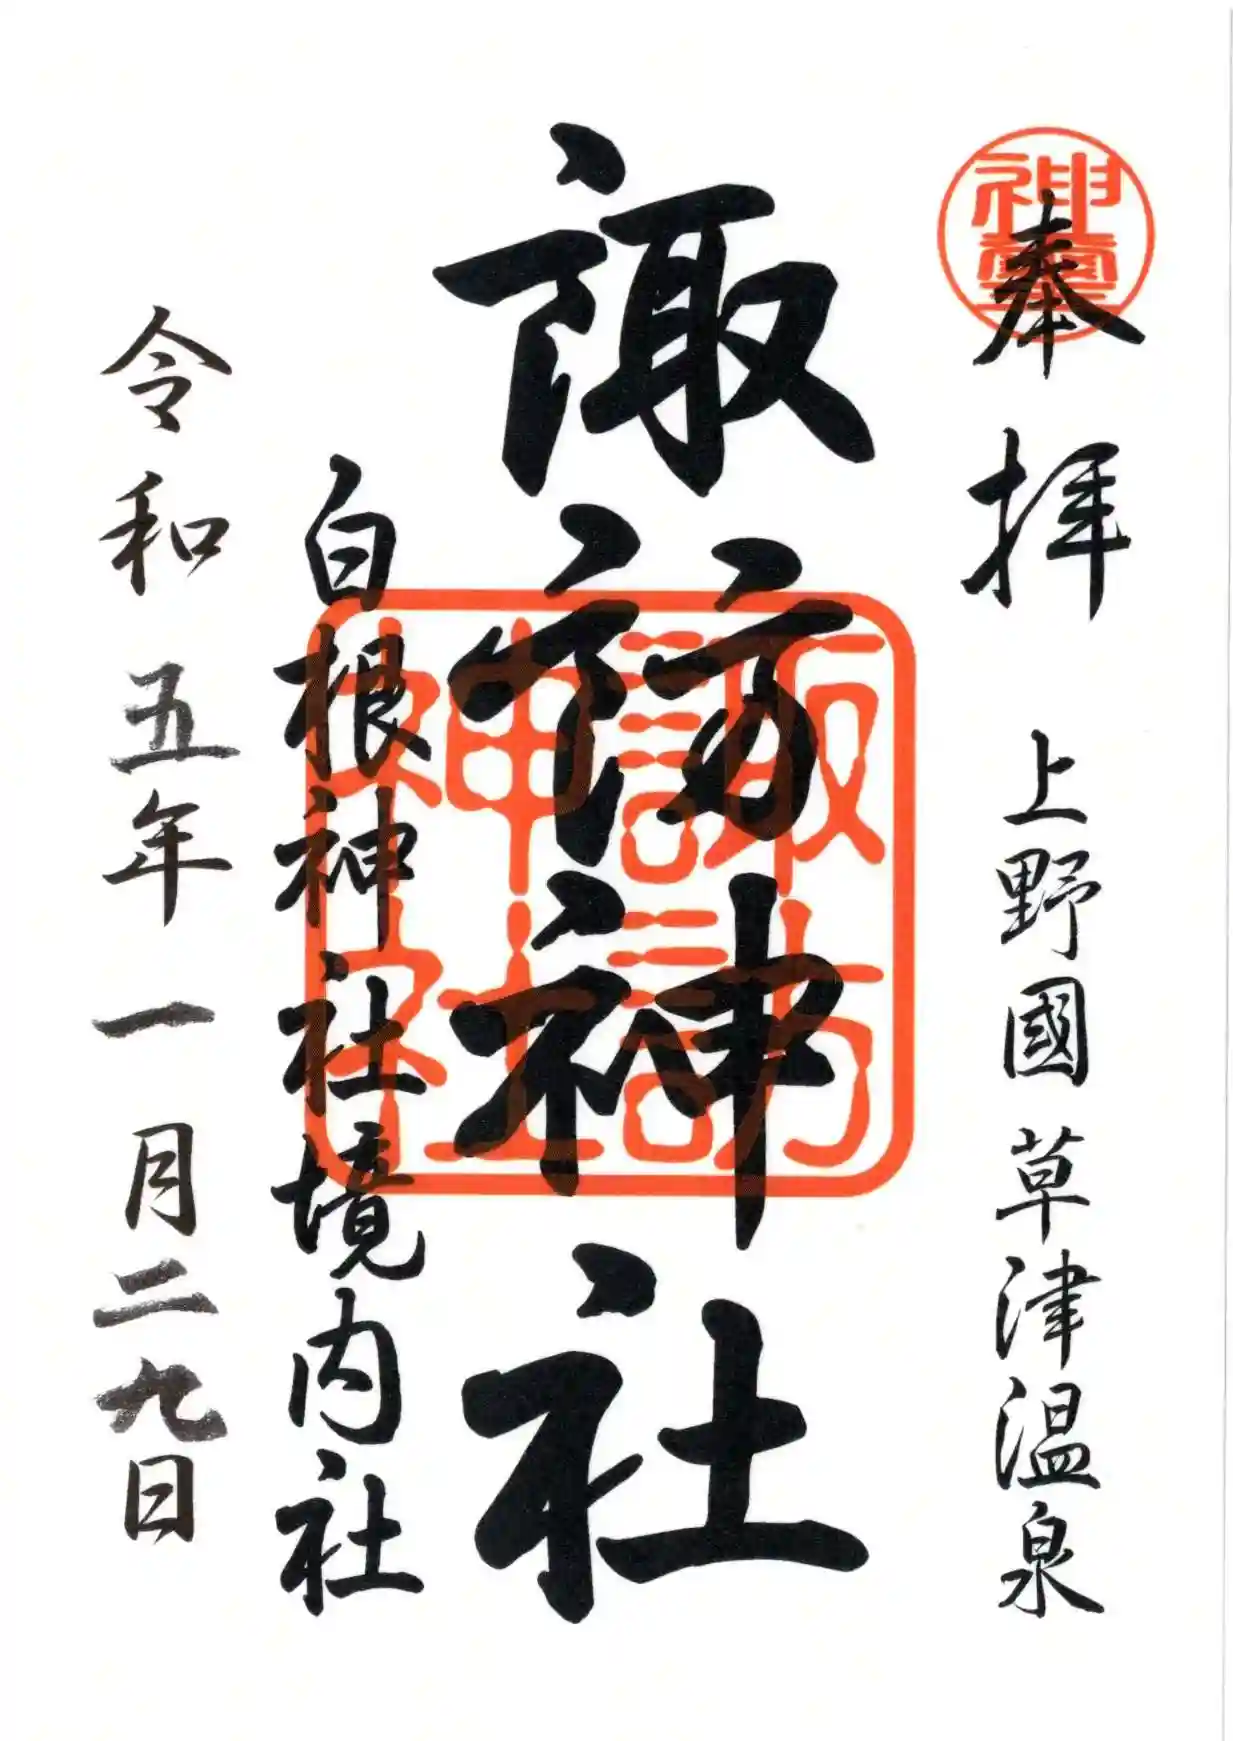 奉拝
上野國草津温泉
諏訪神社
白根神社境内社
令和五年一月二九日
神霊
諏訪
神社